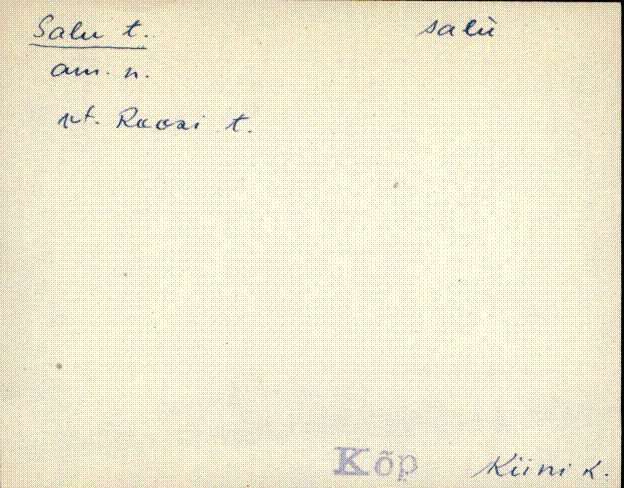 Salu t. salù
am. n.
vt. Roosi t.
Kõp Kiini k.